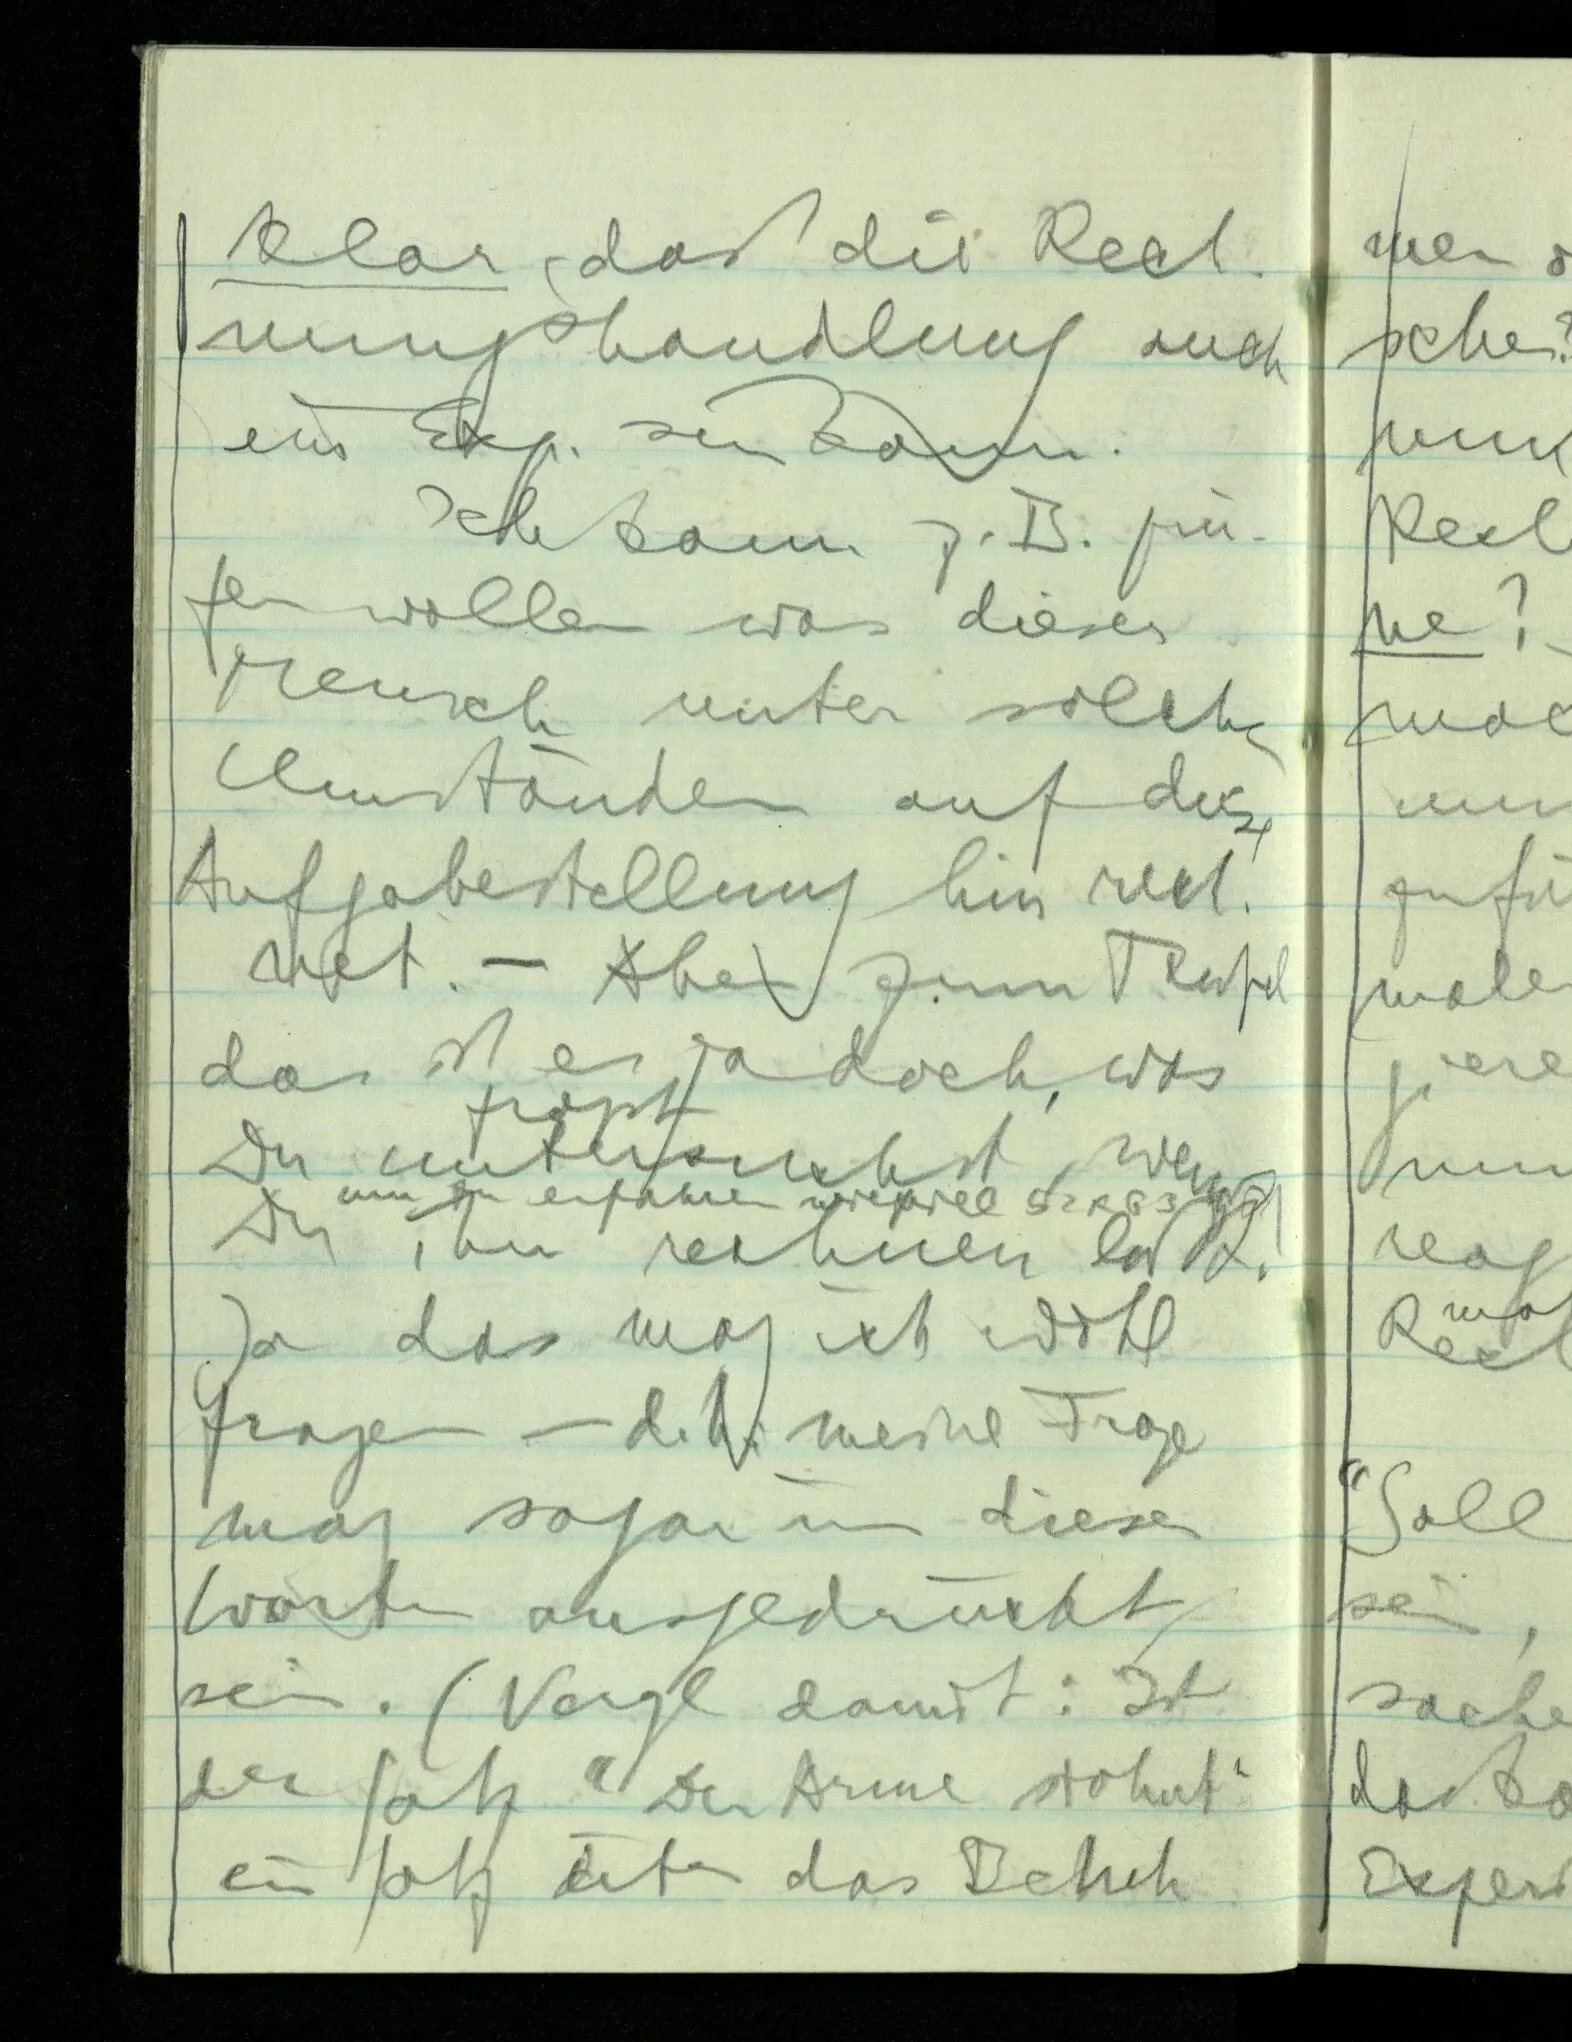 klar, daß die Rech-
nungshandlung auch
ein Exp. sein kann.
Ich kann z.B. prü-
fen wollen was dieser
Mensch unter solchen
Umständen auf diese
Aufgabestellung hin rech-
net. – Aber zum Teufel
das ist es ja doch, was
fragst
Du untersuchst, wenn
um zu erfahren wieviel 52 x 63 ist
Du ihn rechnen läßt!
Ja das mag ich wohl
fragen – d.h. meine Frage
mag sogar in diesen
Worten ausgedrückt
sein. (Vergl damit: Ist
der Satz "Der Arme stöhnt"
ein Satz über das Beneh
men
sche?
Rech
ne?
mac
"Soll
sein,
sache
daß
Experi